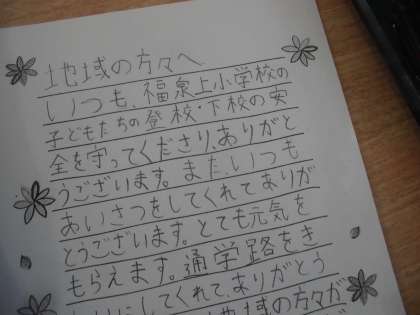 地域の方々へ
いつも、福泉上小学校の
子どもたちの登校・下校の安
全を守ってくださり、ありがと
うございます。また、いつも
あいさつをしてくれてありが
とうございます。とても元気を
もらえます。通学路をき
にしてくれて、ありがとう
地域の方々が